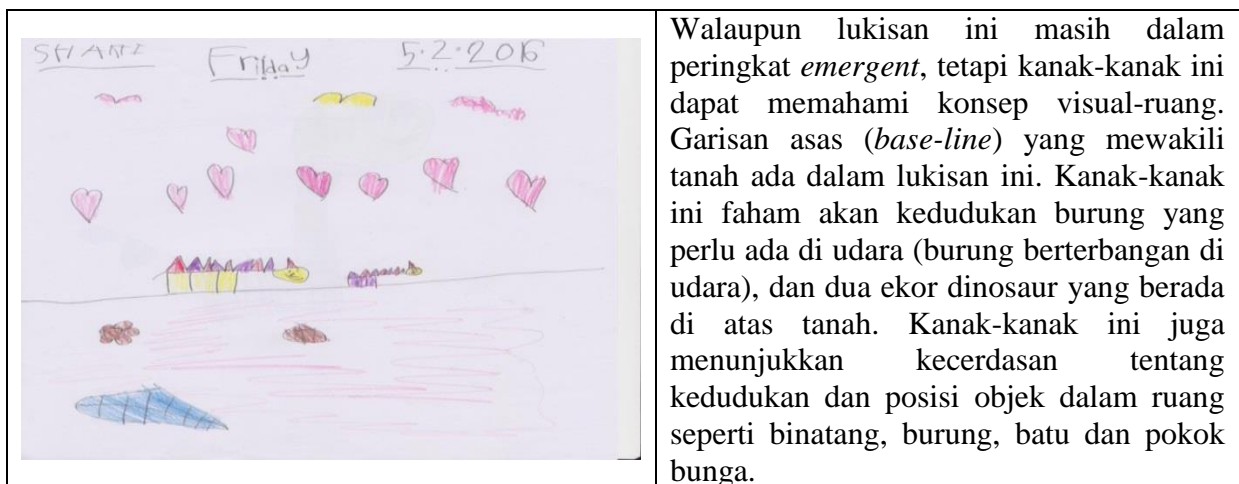 SHANI Friday 5.2.2016
Walaupun lukisan ini masih dalam
peringkat emergent, tetapi kanak-kanak ini
dapat memahami konsep visual-ruang.
Garisan asas (base-line) yang mewakili
tanah ada dalam lukisan ini. Kanak-kanak
ini faham akan kedudukan burung yang
perlu ada di udara (burung berterbangan di
udara), dan dua ekor dinosaur yang berada
di atas tanah. Kanak-kanak ini juga
menunjukkan kecerdasan tentang
kedudukan dan posisi objek dalam ruang
seperti binatang, burung, batu dan pokok
bunga.